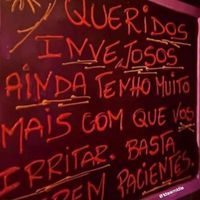 QUERIDOS
INVEJOSOS
AINDA TENHO MUITO
MAIS COM QUE VOS
IRRITAR. BASTA
PACIENTES.